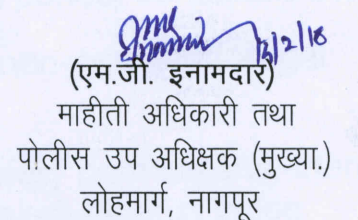 13/2/18
(एम.जी. इनामदार)
माहीती अधिकारी तथा
पोलीस उप अधिक्षक (मुख्या.)
लोहमार्ग, नागपूर